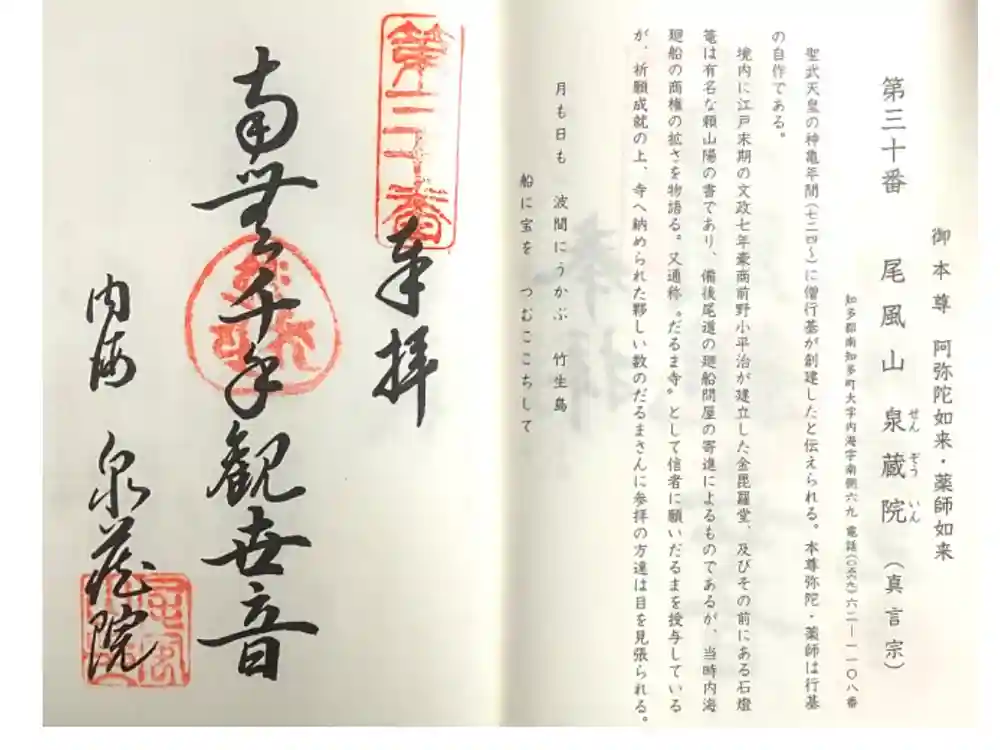 御本尊 阿弥陀如来・薬師如来
第三十番 尾風山 泉蔵院(真言宗)
せんぞういん
知多郡南知多町大字内海字南側六九 電話(〇五六九)六二―一一〇八番
聖武天皇の神亀年間(七二四〜)に僧行基が創建したと伝えられる。本尊弥陀・薬師は行基
の自作である。
境内に江戸末期の文政七年豪商前野小平治が建立した金毘羅堂、及びその前にある石燈
篭は有名な頼山陽の書であり、備後尾道の廻船問屋の寄進によるものであるが、当時内海
廻船の商権の拡さを物語る。又通称〝だるま寺〟として信者に願いだるまを授与している
が、祈願成就の上、寺へ納められた夥しい数のだるまさんに参拝の方達は目を見張られる。
月も日も 波間にうかぶ 竹生島
船に宝を つむここちして
第三十番
奉拝
南無千手観世音
内海 泉蔵院